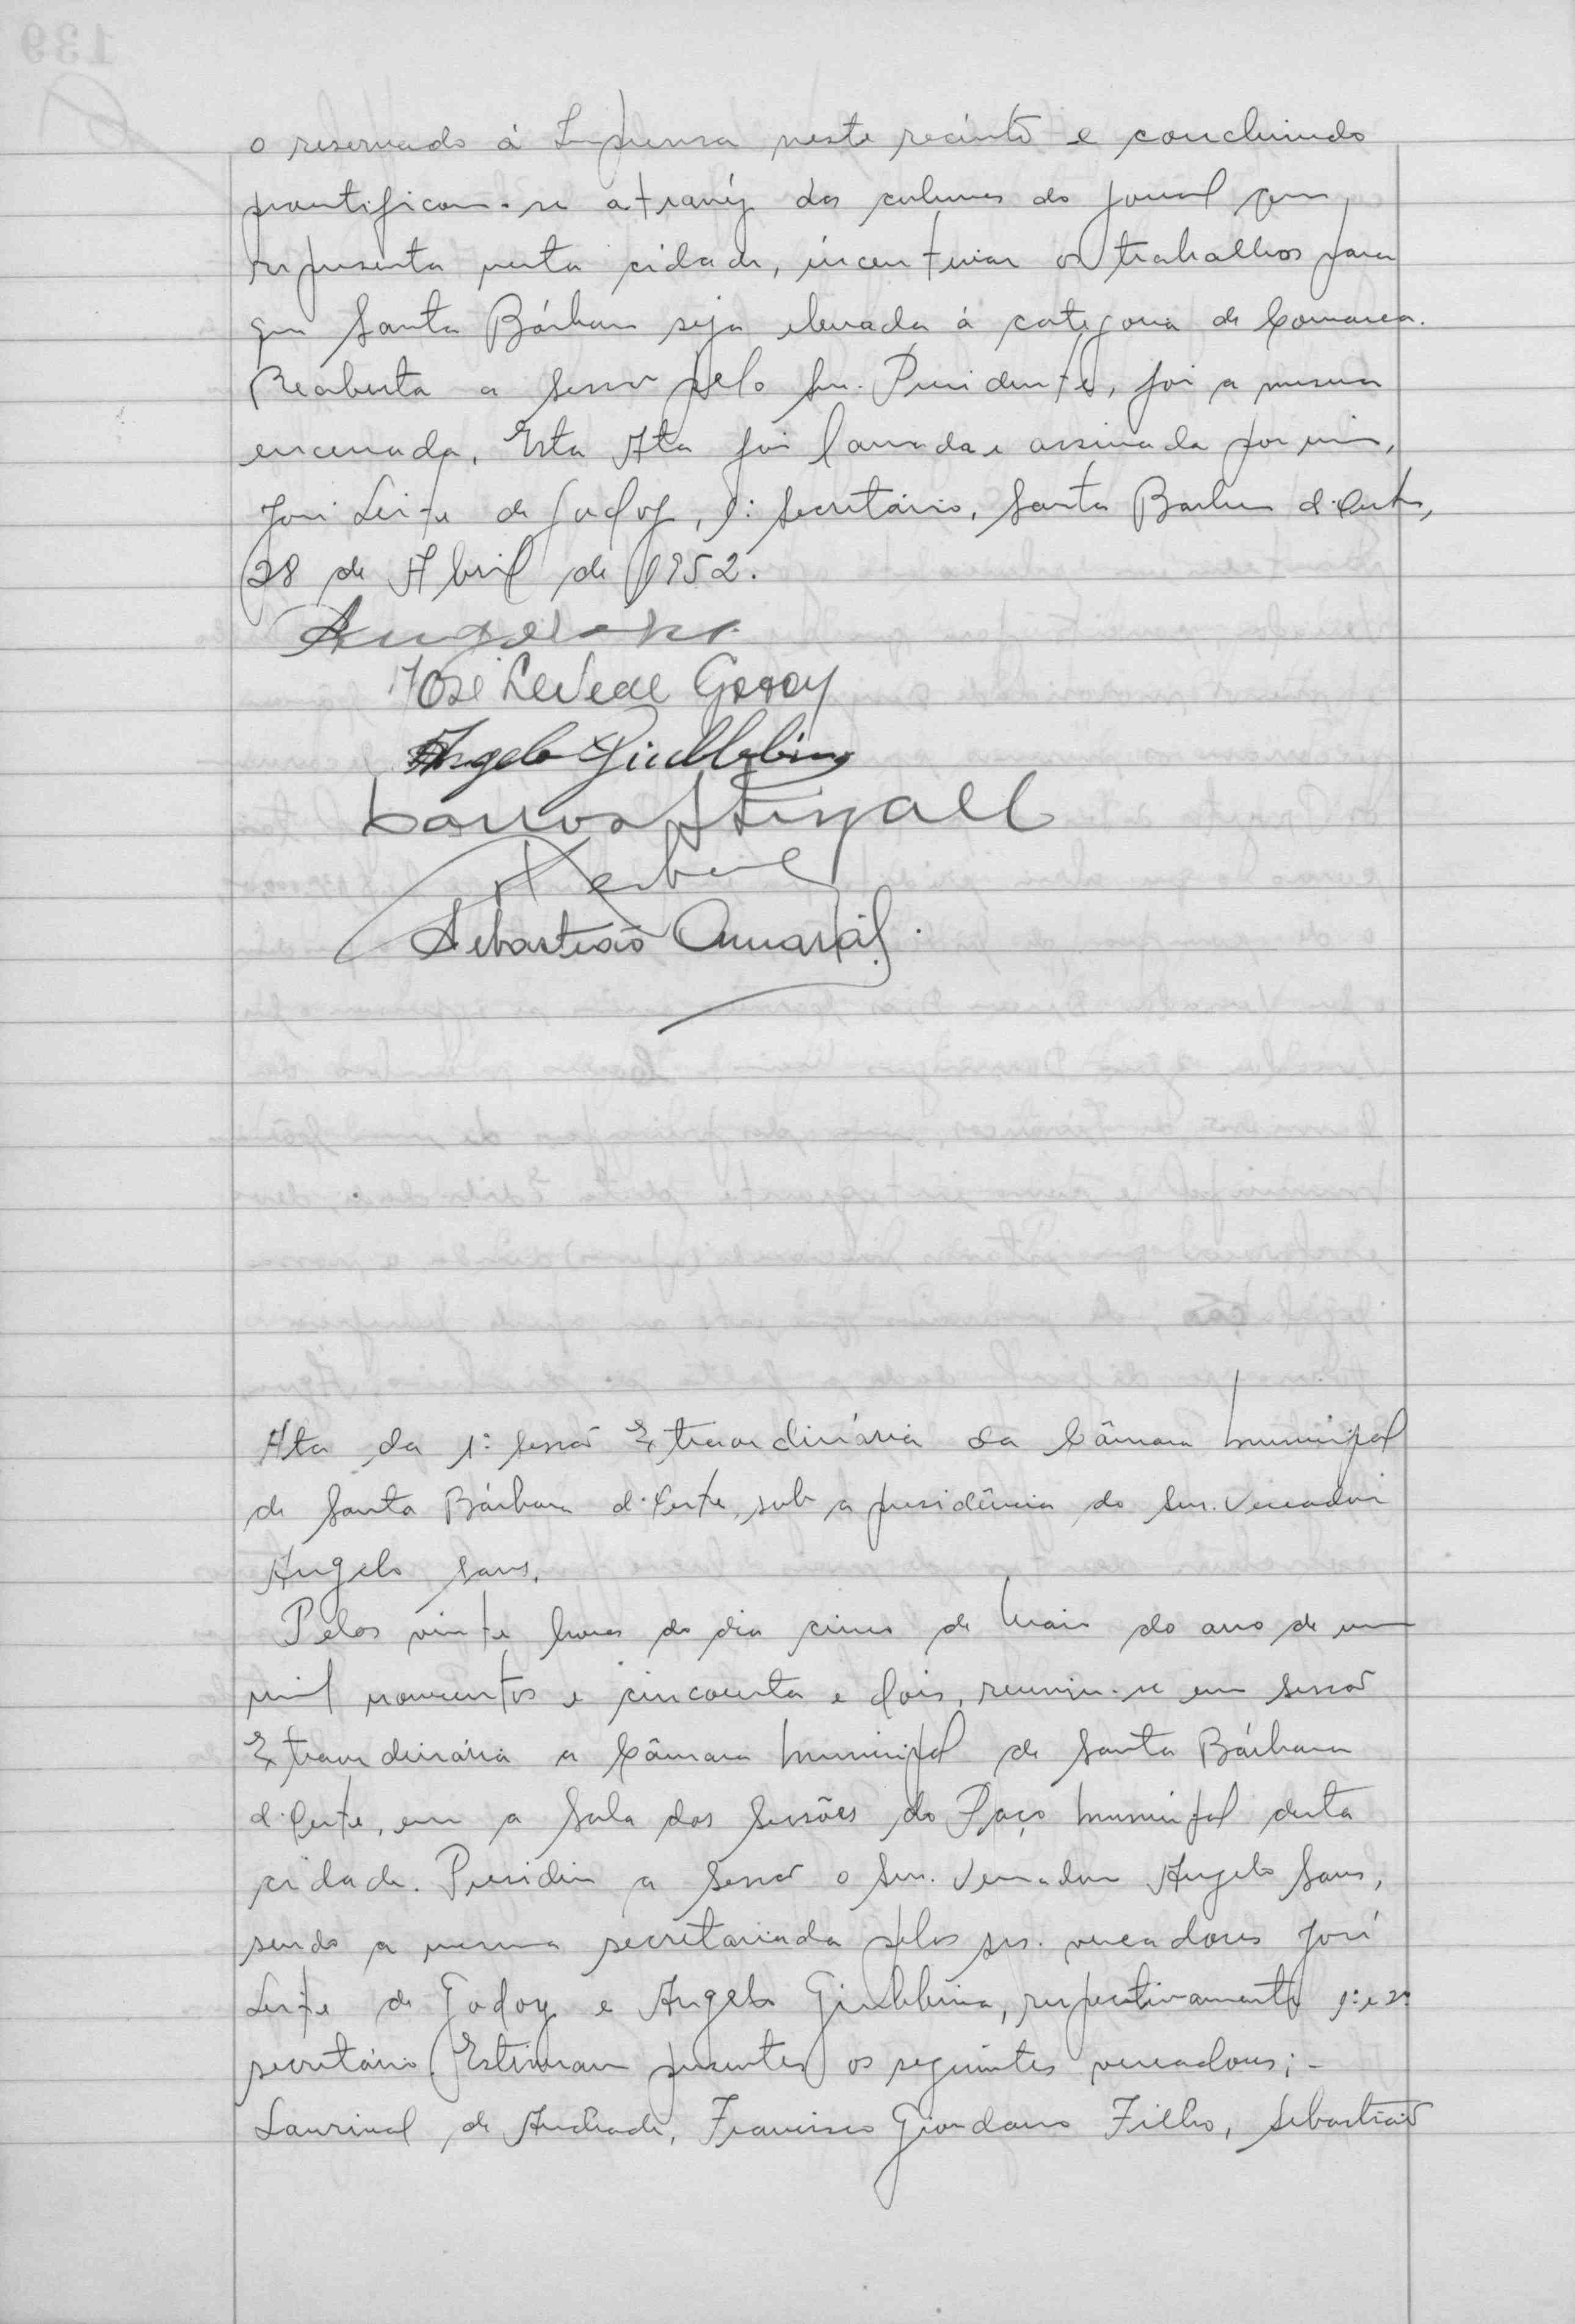 o reservado à Imprensa neste recinto e concluindo
prontificou-se através das colunas do jornal que
representa nesta cidade, incentivar os trabalhos para
que Santa Bárbara seja elevada à categoria de Comarca.
Reaberta a sessão pelo Snr. Presidente, foi a mesma
encerrada. Esta Ata foi lavrada e assinada por mim,
José Leite de Godoy, 1º Secretário, Santa Barbara d'Oeste,
28 de Abril de 1952.
José Leite de Godoy
Angelo Giubbina
Sebastião Amaral.
Ata da 1ª sessão Extraordinária da Câmara Municipal
de Santa Bárbara d'Oeste, sob a presidência do Snr. Vereador
Angelo Sans.
Pelas vinte horas do dia cinco de Maio do ano de um
mil novecentos e cincoenta e dois, reuniu-se em sessão
Extraordinária a Câmara Municipal de Santa Bárbara
d'Oeste, em a Sala das Sessões do Paço Municipal desta
cidade. Presidiu a sessão o Snr. Vereador Angelo Sans,
sendo a mesma secretariada pelos srs. vereadores José
Leite de Godoy e Angelo Giubbina, respectivamente 1º e 2º
secretário. Estiveram presentes os seguintes vereadores;-
Laurival de Andrade, Francisco Giordano Filho, Sebastião
139